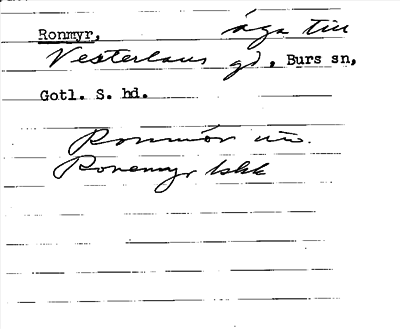 Ronmyr, äga till
Vesterlaus gd, Burs sn,
Gotl. S. hd.
Ronmör
Ronemyr Iskk